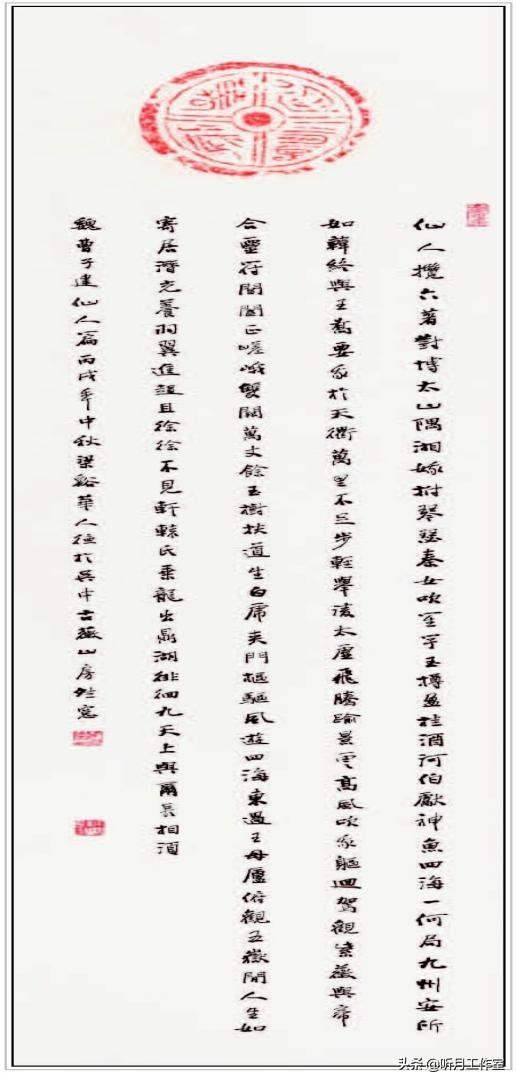 仙人攬六著對博太山隅湘娥拊琴瑟秦女吹笙竽玉樽盈桂酒河伯獻神魚四海一何局九州安所
如韓終與王喬要我於天衢萬里不足步輕舉淩太虛飛騰踰景雲高風吹我軀迴駕觀紫薇與帝
合靈符閶闔正嵯峨雙闕萬丈餘玉樹扶道生白虎夾門樞驅風遊四海東過王母廬俯觀五嶽間人生如
寄居潛光養羽翼進趨且徐徐不見軒轅氏乘龍出鼎湖徘徊九天上與爾長相須
魏曹子建仙人篇丙戌年中秋梁谿華人德於吳中古薇山房
头条 @听月工作室